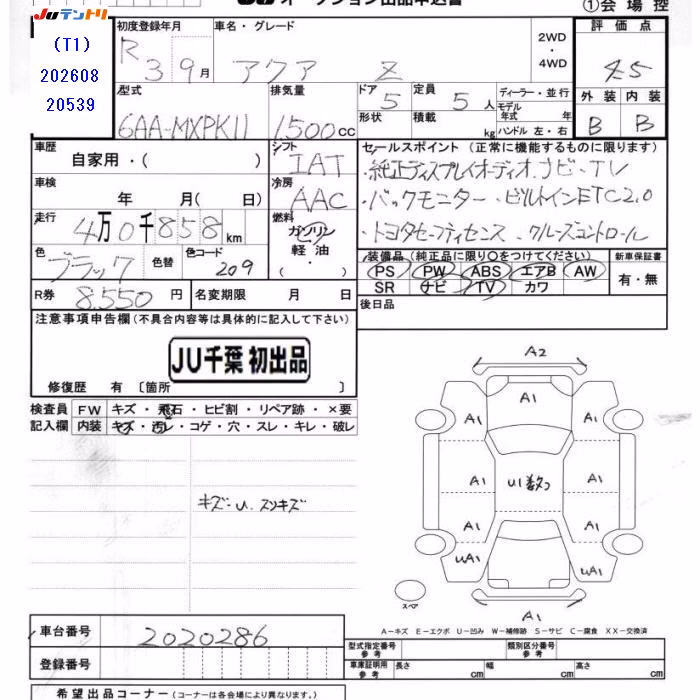 JUテントリ
オークション出品申込書
①会場控
(T1)
202608
20539
初度登録年月
R 3 9月
車名・グレード
アクア Z
2WD
・
4WD
評価点
4.5
型式
6AA-MXPK11
排気量
1500cc
ドア
5
形状
定員
5人
積載
kg
ディーラー・並行
モデル年式 年
ハンドル 左・右
外装
B
内装
B
車歴
自家用・( )
シフト
IAT
セールスポイント (正常に機能するものに限ります)
・純正ディスプレイオーディオ, ナビ・TV
・バックモニター・ビルトインETC2.0
・トヨタセーフティセンス・クルーズコントロール
車検
年 月( 日)
冷房
AAC
走行
4万0千858km
燃料
ガソリン
・
軽油
・( )
色
ブラック
色替
色コード
209
装備品 (純正品に限り○をつけてください)
PS PW ABS エアB AW
SR ナビ TV カワ
新車保証書
有・無
R券
8,550円
名変期限 月 日
後日品
注意事項申告欄 (不具合内容等は具体的に記入して下さい)
JU千葉 初出品
修復歴 有 〔箇所 〕
検査員
記入欄
FW キズ・飛石・ヒビ割・リペア跡・×要
内装 キズ・汚レ・コゲ・穴・スレ・キレ・破レ
キズ・U. スリキズ
A2
A1
A1 A1
U1数つ
A1 A1
A1 A1
UA1 UA1
A1
スペア
A－キズ E－エクボ U－凹み W－補修跡 S－サビ C－腐食 XX－交換済
車台番号
2020286
登録番号
型式指定番号 参考
類別区分番号 参考
車庫証明用 参考
長さ cm
幅 cm
高さ cm
希望出品コーナー (コーナーは各会場により異なります。)